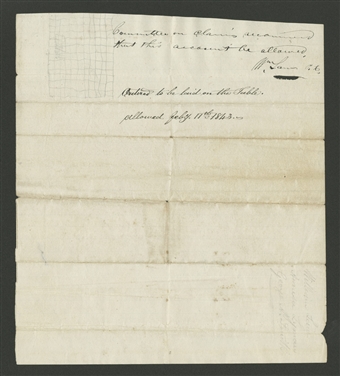 Committee on Claims recommend
that this account be allowed
Wm
Ordered to be laid on the Table.
allowed July 11th 1843